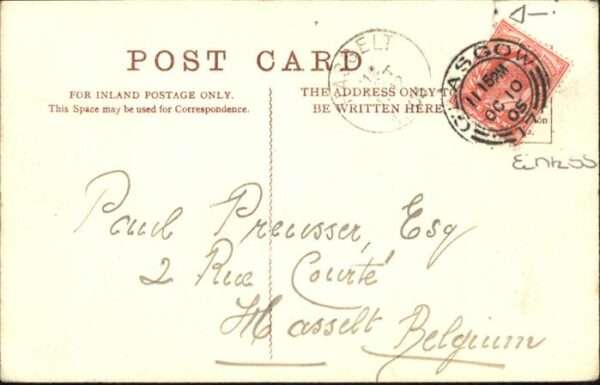 POST CARD
FOR INLAND POSTAGE ONLY.
This Space may be used for Correspondence.
THE ADDRESS ONLY TO
BE WRITTEN HERE
GLASGOW
11 15PM
OC 10
05
Paul Preusser, Esq
2 Rue Courté
Hasselt Belgium